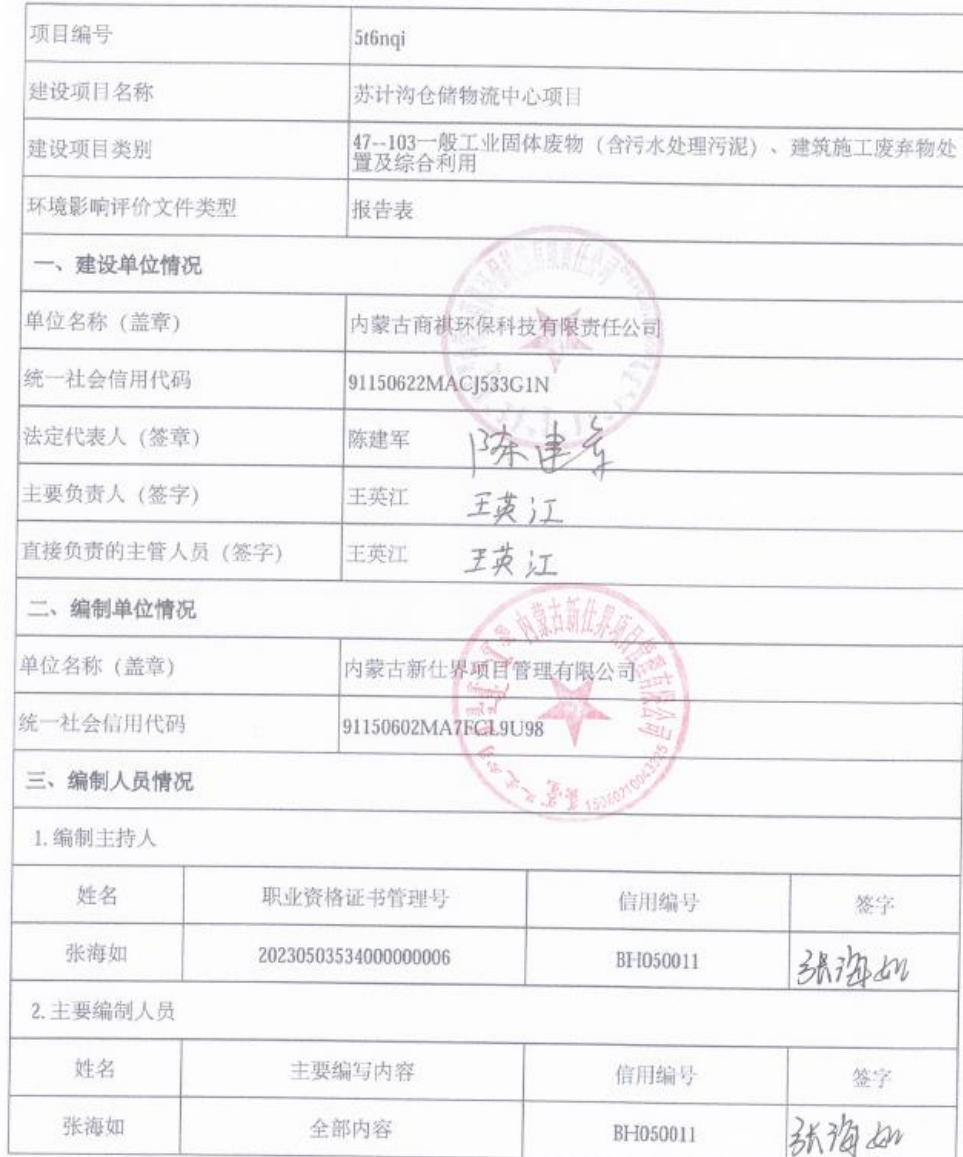 项目编号 5t6nqi
建设项目名称 苏计沟仓储物流中心项目
建设项目类别 47--103一般工业固体废物（含污水处理污泥）、建筑施工废弃物处
置及综合利用
环境影响评价文件类型 报告表
一、建设单位情况
单位名称（盖章） 内蒙古商祺环保科技有限责任公司
统一社会信用代码 91150622MACJ533G1N
法定代表人（签章） 陈建军 陈建军
主要负责人（签字） 王英江 王英江
直接负责的主管人员（签字） 王英江 王英江
二、编制单位情况
内蒙古新仕界项目管理有限公司
单位名称（盖章） 内蒙古新仕界项目管理有限公司
统一社会信用代码 91150602MA7FCL9U98
三、编制人员情况
1.编制主持人
姓名 职业资格证书管理号 信用编号 签字
张海如 20230503534000000006 BH050011 张海如
2.主要编制人员
姓名 主要编写内容 信用编号 签字
张海如 全部内容 BH050011 张海如